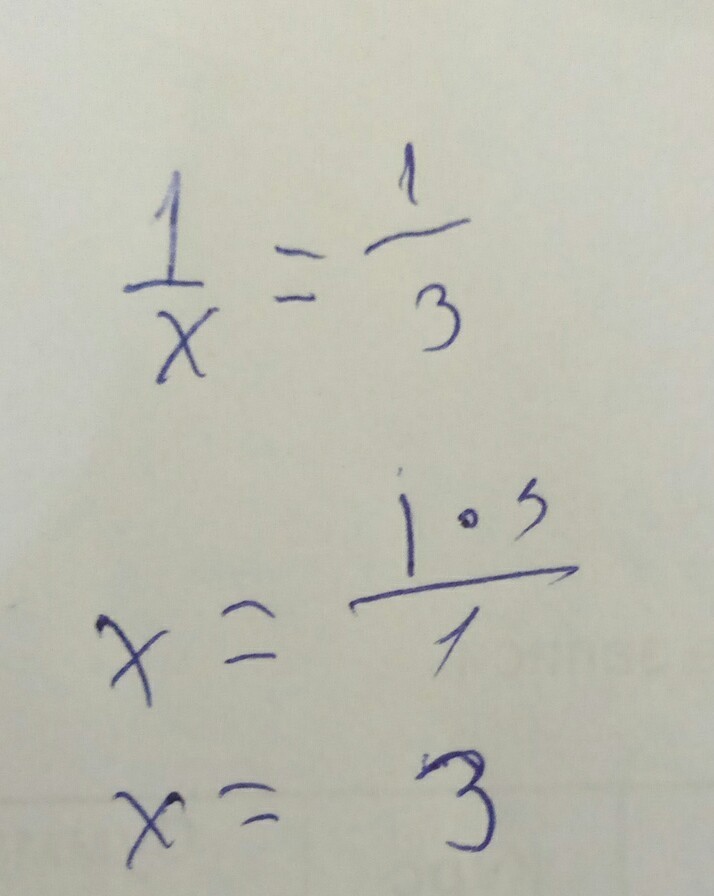 1/x = 1/3
x = 1·3/1
x = 3